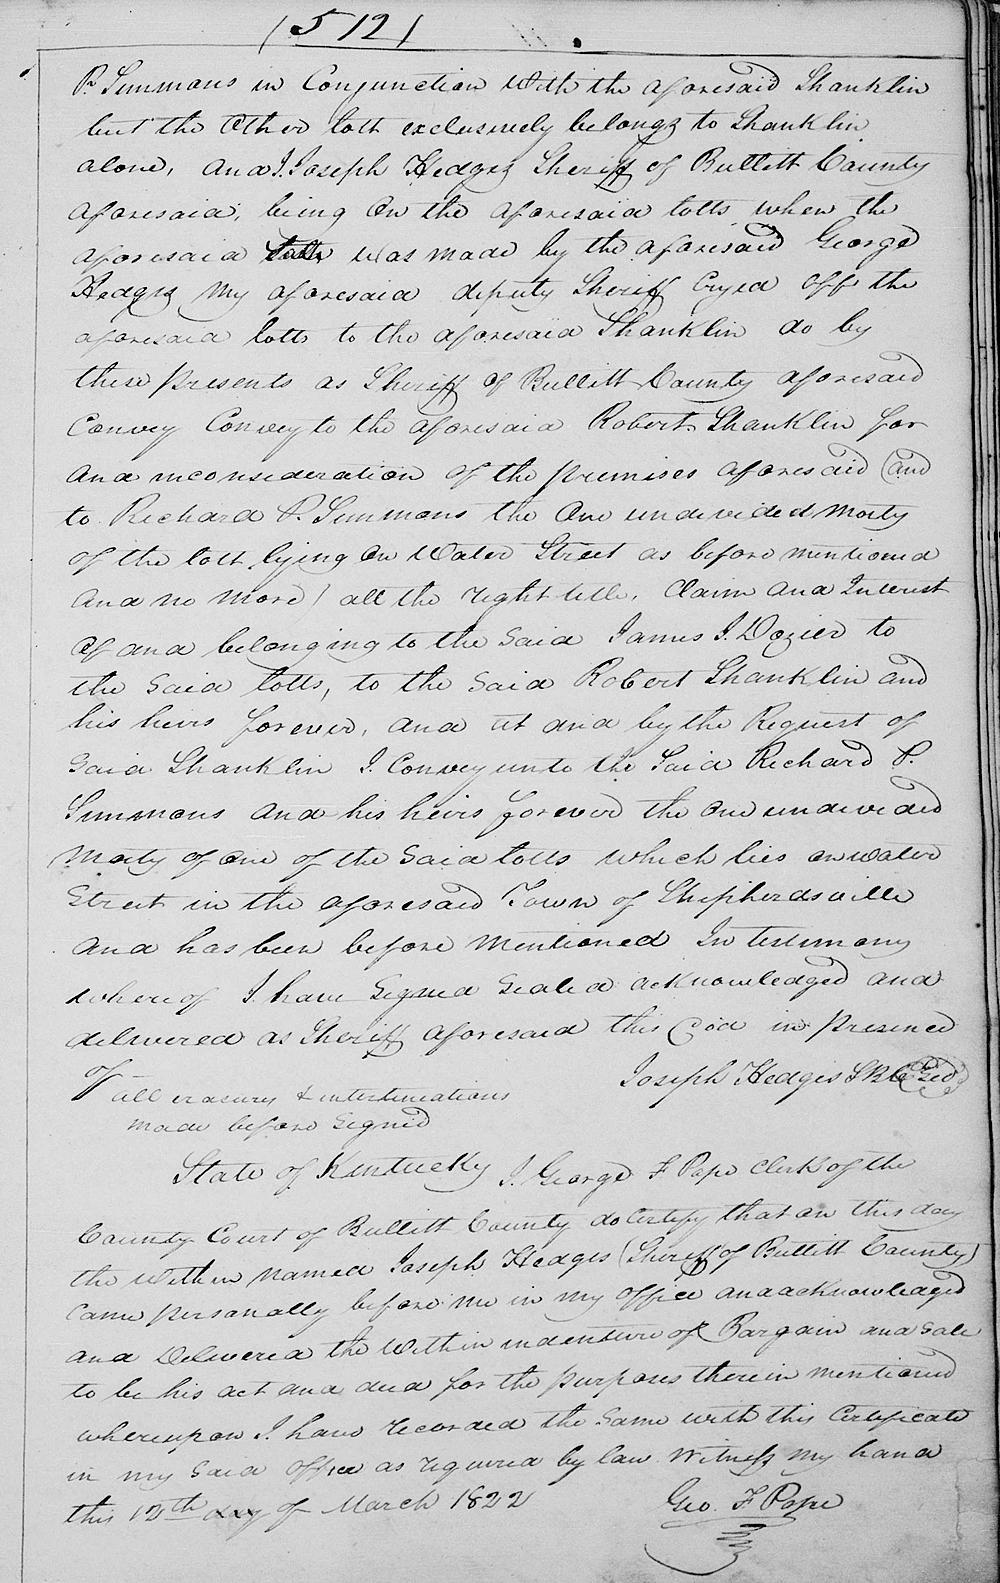 (512)
P. Simmons in Conjunction With the aforesaid Shanklin
but the Other lott exclusively belongs to Shanklin
alone, And I. Joseph Hedges Sheriff of Bullitt County
aforesaid, being On the aforesaid lotts when the
aforesaid was made by the aforesaid George
Hedges My aforesaid deputy Sheriff Cryed off the
aforesaid lotts to the aforesaid Shanklin do by
these presents as Sheriff of Bullitt County aforesaid
Convey Convey to the aforesaid Robert Shanklin for
And inconsideration of the premises aforesaid (and
to Richard P. Simmons the One undivided Moity
of the lott lying On Water Street as before mentioned
And no More) all the right title, Claim And Interest
Of and belonging to the Said James I. Dozier to
the Said lotts, to the Said Robert Shanklin and
his heirs forever, and at and by the Request of
Said Shanklin I. Convey unto the Said Richard P.
Simmons And his heirs forever the One undivided
Moity of One of the Said lotts which lies on Water
Street in the aforesaid Town of Shepherdsville
And has been before Mentioned In testimony
whereof I. have Signed Sealed acknowledged and
delivered as Sheriff aforesaid this in presence
of Joseph Hedges SBC Seal
all erasurs & interlineations
made before Signed
State of Kentucky I. George F Pope Clerk of the
County Court of Bullitt County do Certify that on this day
the Within Named Joseph Hedges (Sheriff of Bullitt County)
Came personally before me in my office and acknowledged
and Delivered the Within indenture of Bargain and Sale
to be his act and deed for the purposes therein mentioned
whereupon I. have recorded the Same with this Certificate
in my Said Office as required by law Witness My hand
this 12th day of March 1822 Geo. F Pope